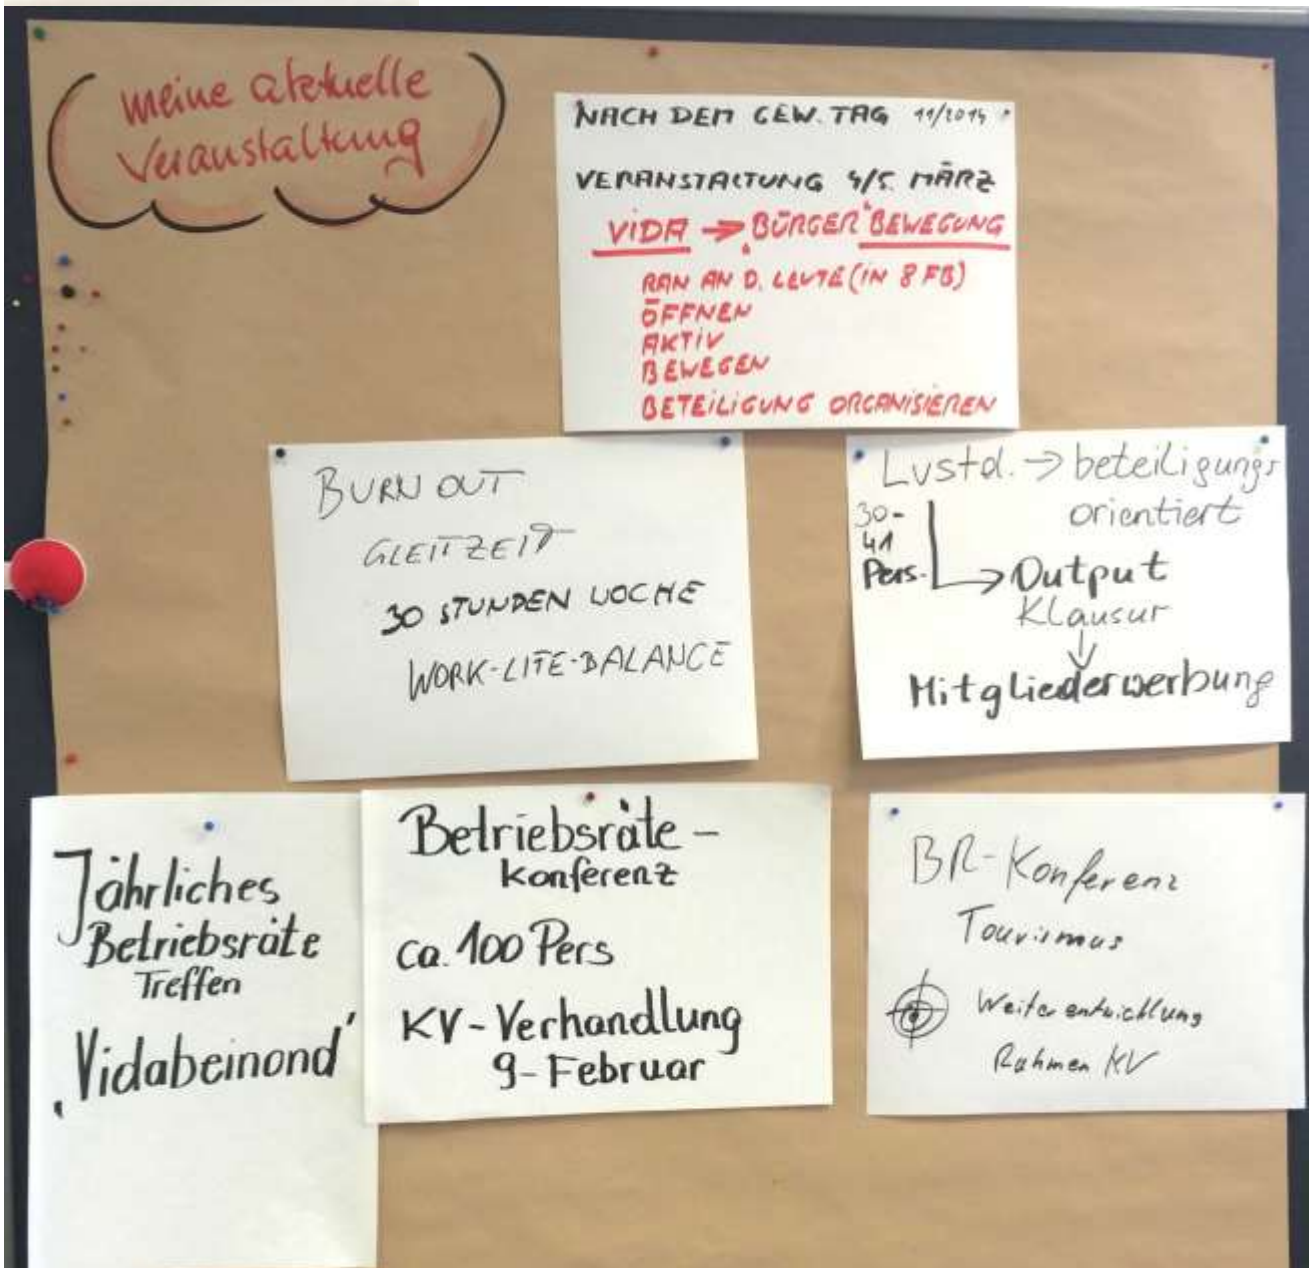 meine aktuelle
Veranstaltung
NACH DEM GEW. TAG 11/2014
VERANSTALTUNG 4/5. MÄRZ
VIDA → BÜRGER BEWEGUNG
RAN AN D. LEUTE (IN 8 FB)
ÖFFNEN
AKTIV
BEWEGEN
BETEILIGUNG ORGANISIEREN
BURN OUT
GLEITZEIT
30 STUNDEN WOCHE
WORK-LITE-BALANCE
Lvstd. → beteiligungs
orientiert
30-
41
Pers.
→ Output
Klausur
↓
Mitgliederwerbung
Jährliches
Betriebsräte
Treffen
‚Vidabeinond‘
Betriebsräte –
Konferenz
ca. 100 Pers
KV-Verhandlung
9-Februar
BR-Konferenz
Tourismus
Weiterentwicklung
Rahmen KV